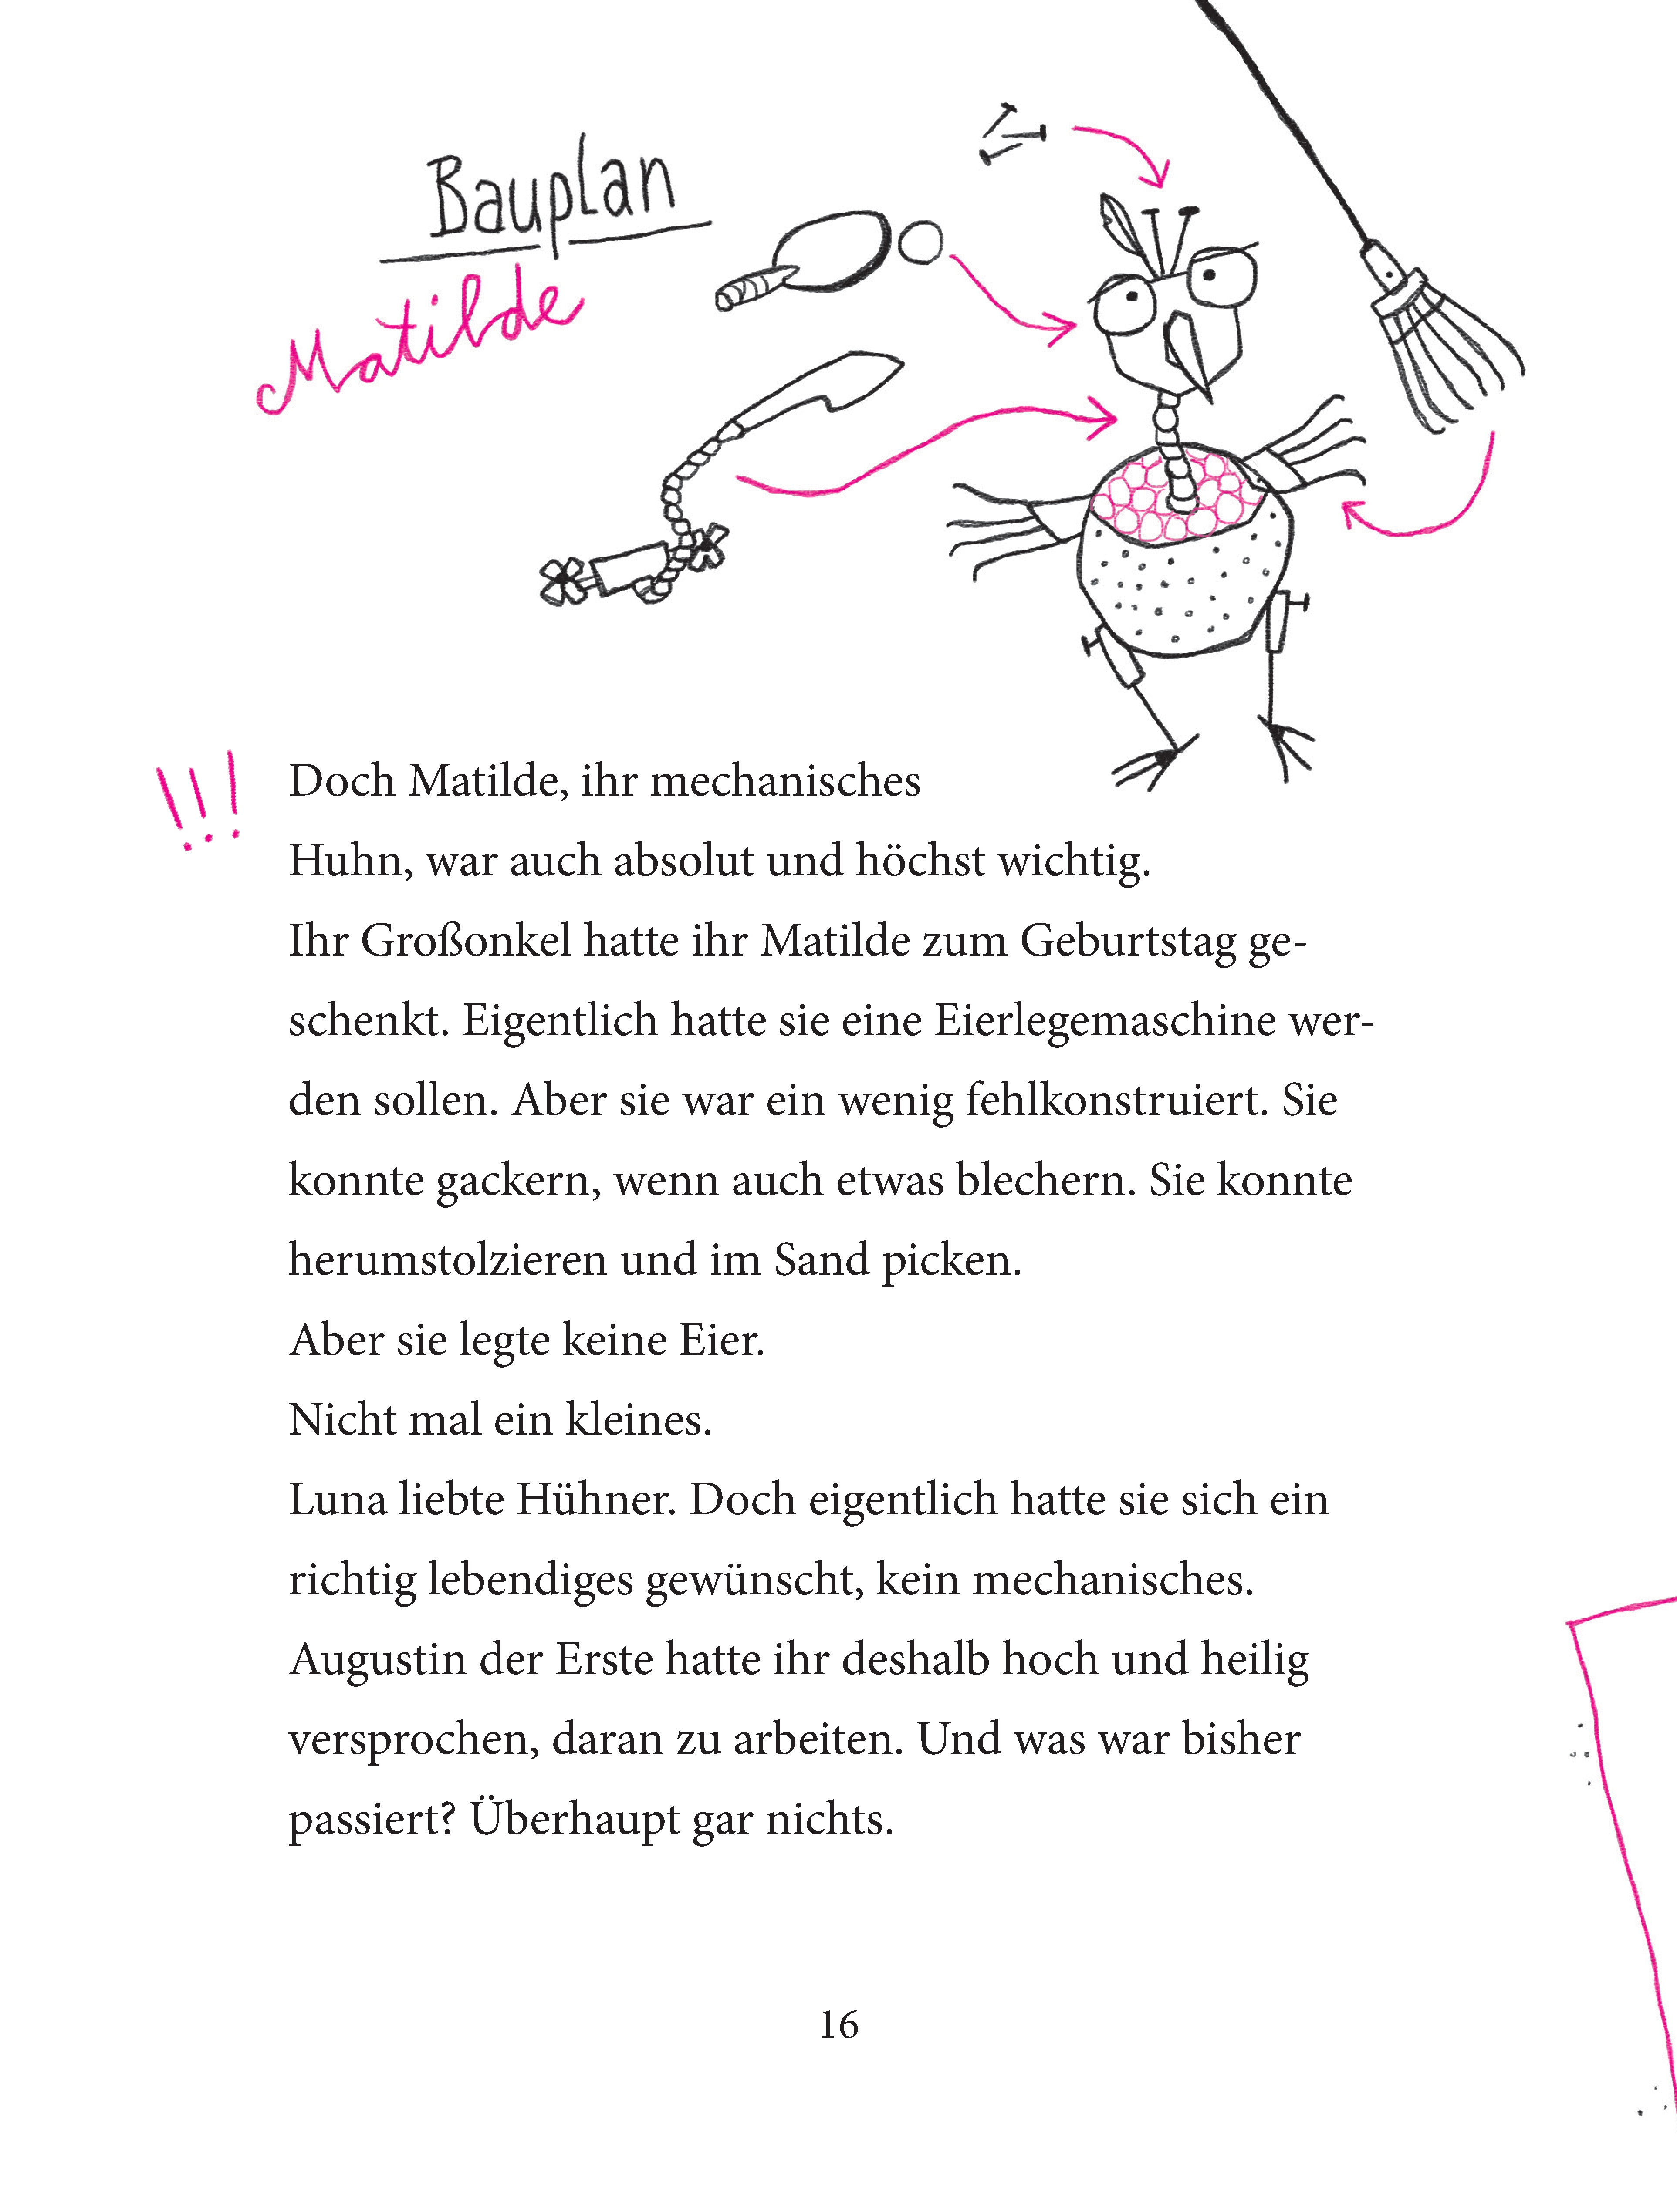 Bauplan
Matilde
!!!
Doch Matilde, ihr mechanisches
Huhn, war auch absolut und höchst wichtig.
Ihr Großonkel hatte ihr Matilde zum Geburtstag ge-
schenkt. Eigentlich hatte sie eine Eierlegemaschine wer-
den sollen. Aber sie war ein wenig fehlkonstruiert. Sie
konnte gackern, wenn auch etwas blechern. Sie konnte
herumstolzieren und im Sand picken.
Aber sie legte keine Eier.
Nicht mal ein kleines.
Luna liebte Hühner. Doch eigentlich hatte sie sich ein
richtig lebendiges gewünscht, kein mechanisches.
Augustin der Erste hatte ihr deshalb hoch und heilig
versprochen, daran zu arbeiten. Und was war bisher
passiert? Überhaupt gar nichts.
16